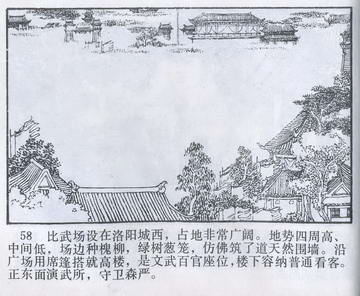 58 比武场设在洛阳城西，占地非常广阔。地势四周高、
中间低，场边种槐柳，绿树葱笼，仿佛筑了道天然围墙。沿
广场用席篷搭就高楼，是文武百官座位，楼下容纳普通看客。
正东面演武所，守卫森严。